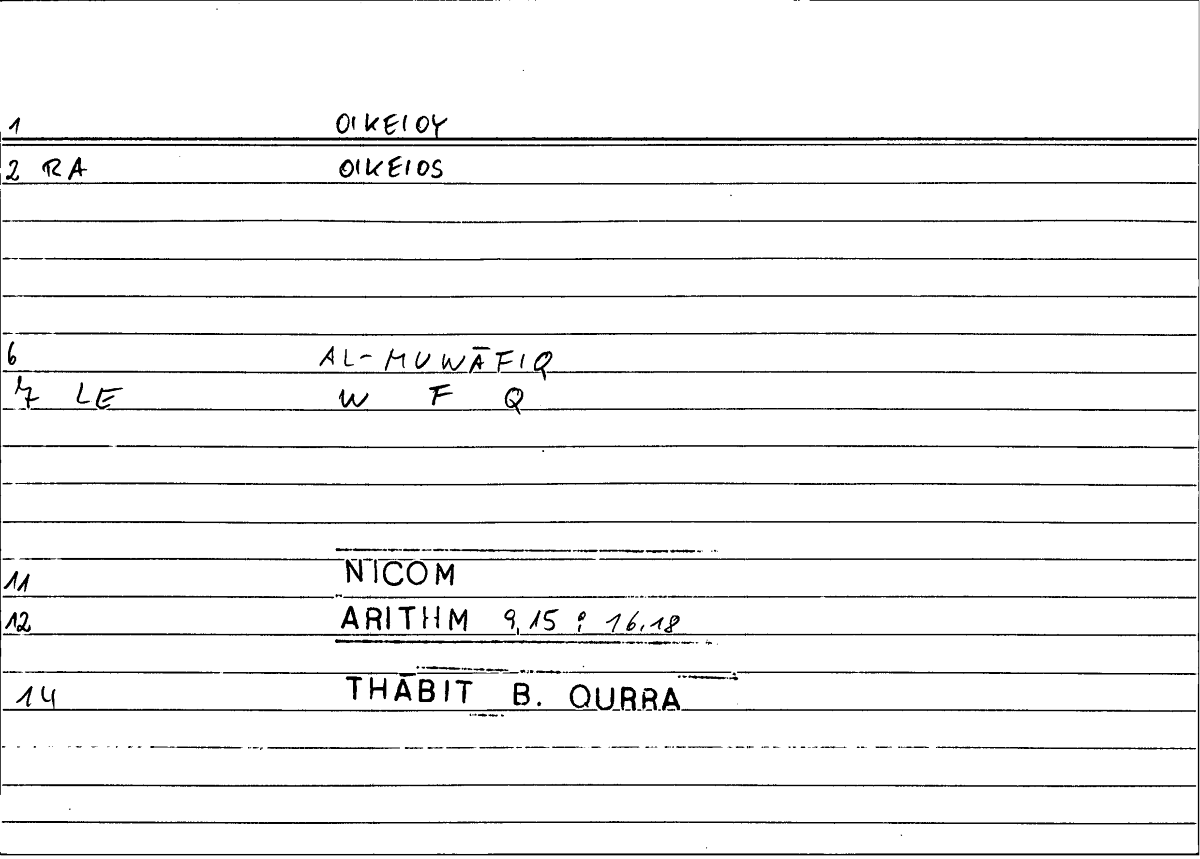 1 OIKEIOY
2 RA OIKEIOS
6 AL-MUWĀFIQ
7 LE W F Q
11 NICOM
12 ARITHM 9,15 : 16.18
14 THĀBIT B. QURRA